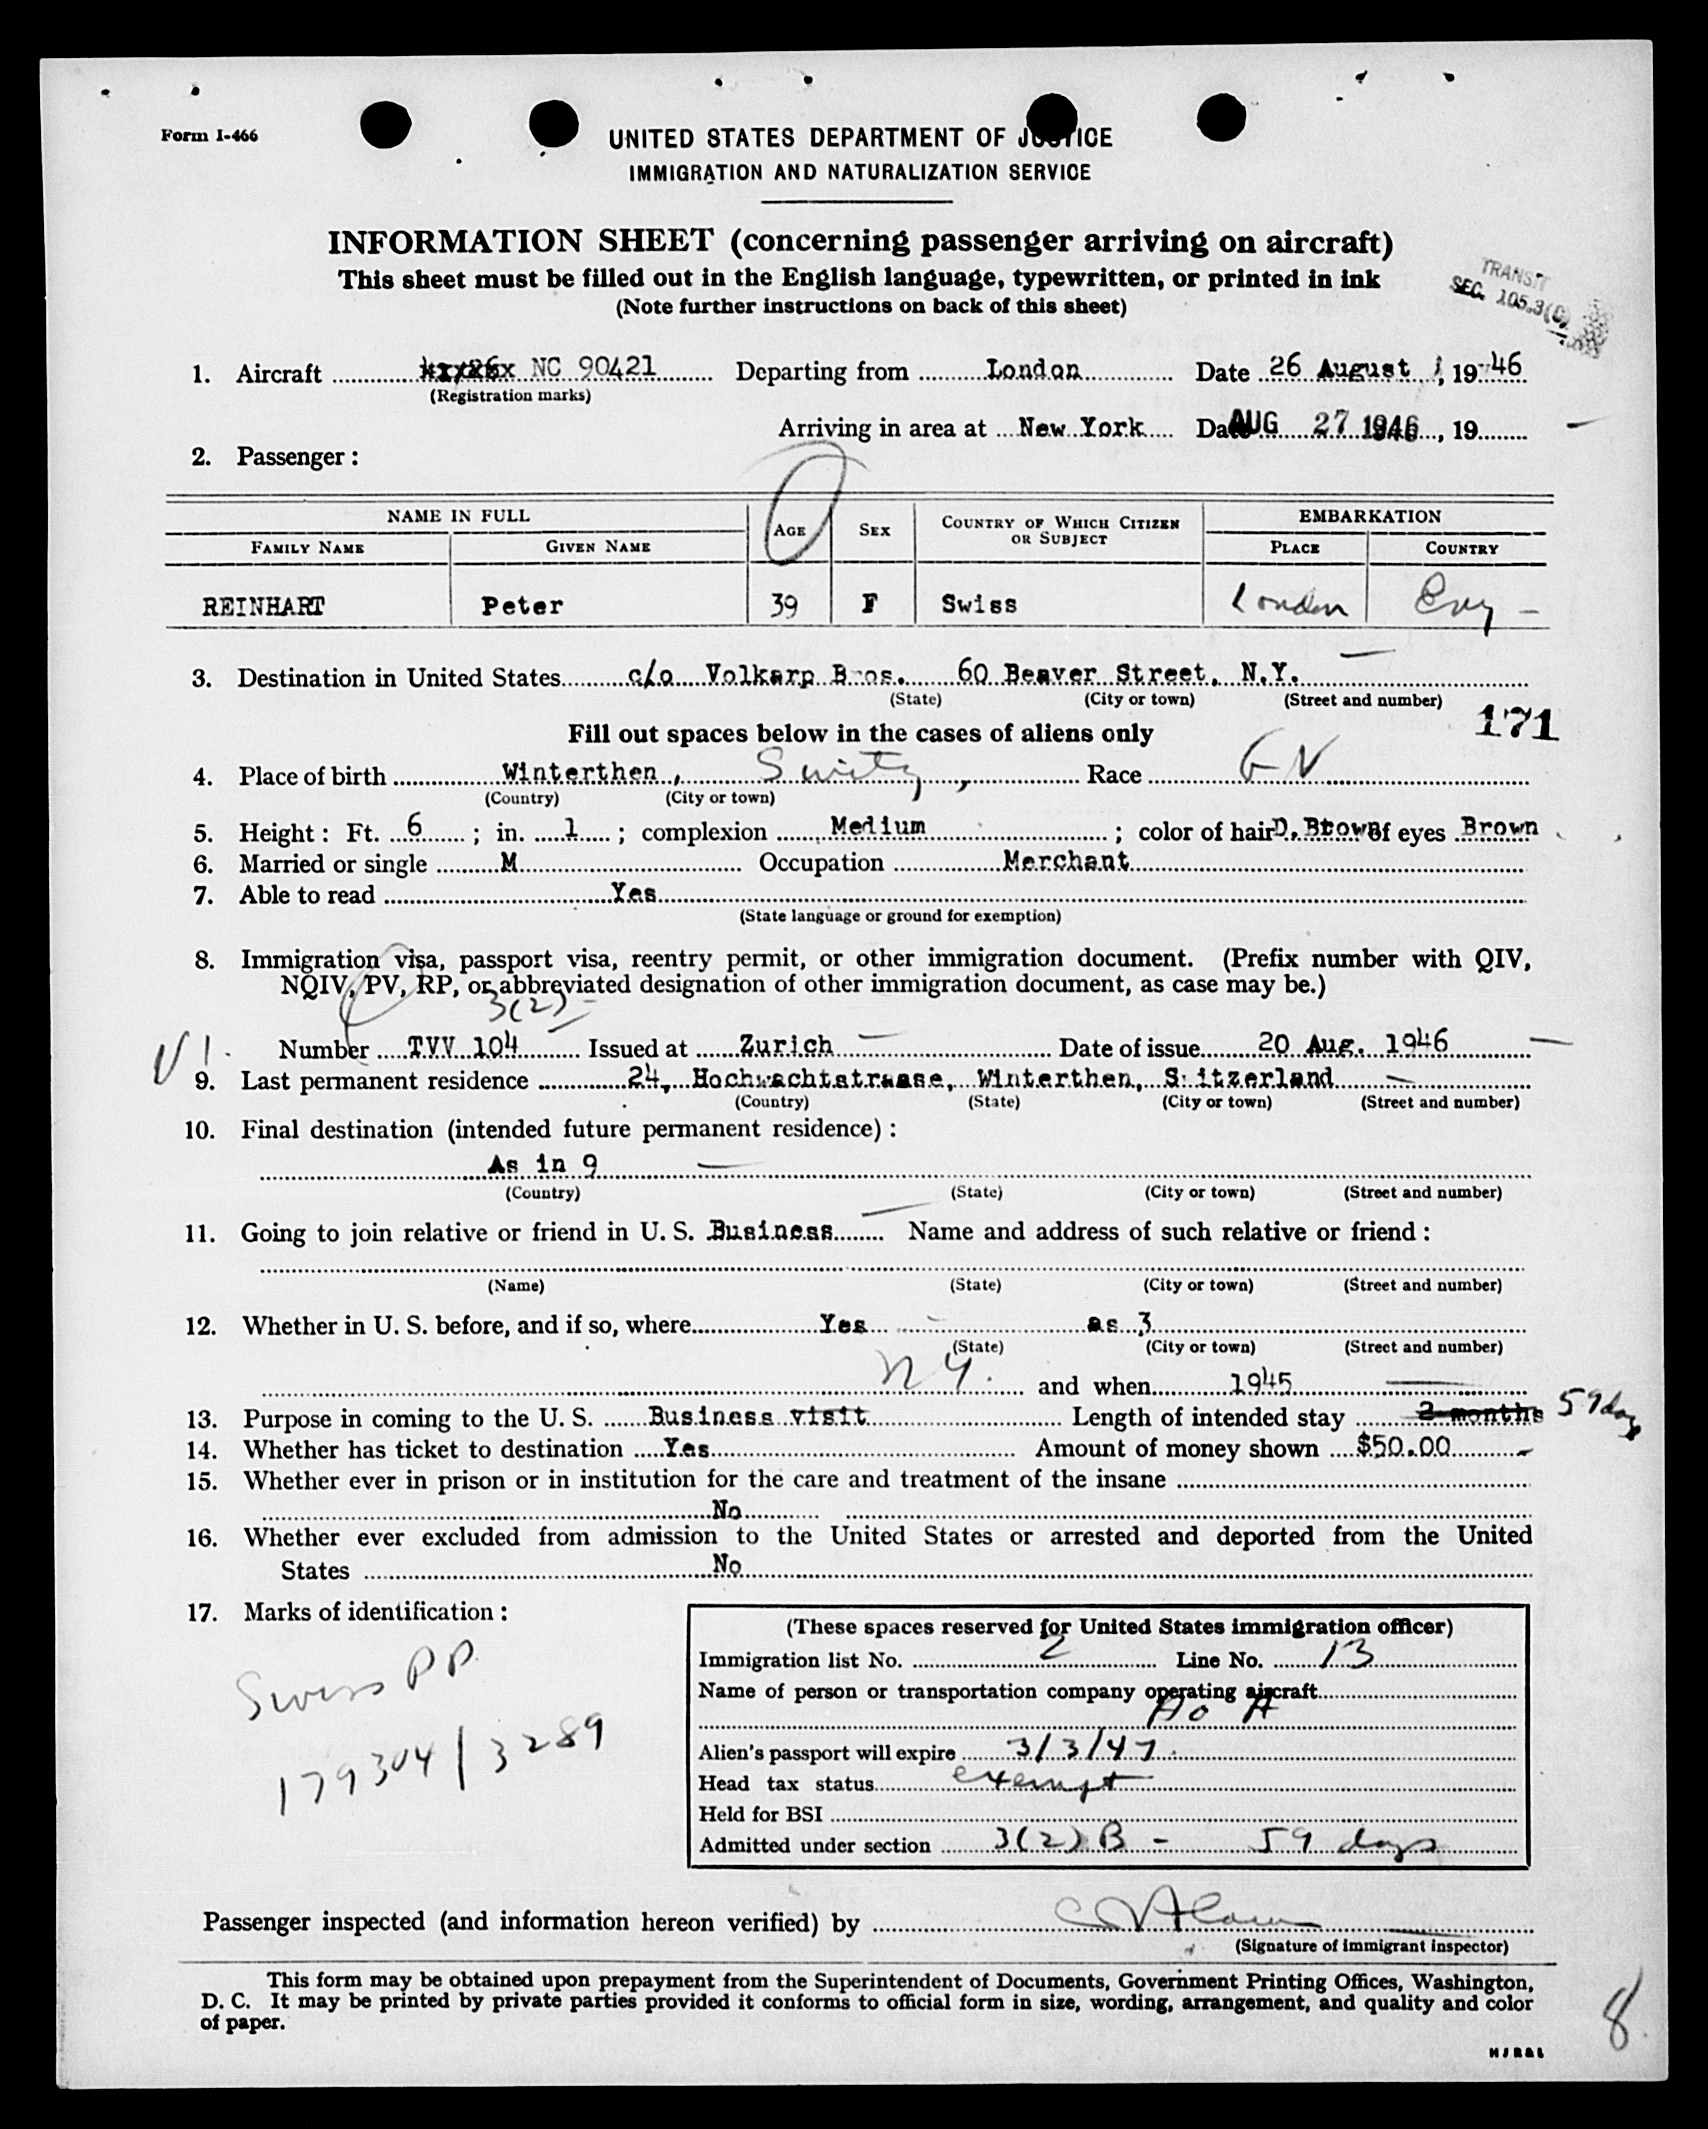 Form I-466
UNITED STATES DEPARTMENT OF JUSTICE
IMMIGRATION AND NATURALIZATION SERVICE
INFORMATION SHEET (concerning passenger arriving on aircraft)
This sheet must be filled out in the English language, typewritten, or printed in ink
(Note further instructions on back of this sheet)
TRANSIT
SEC. 105.3(C)
1. Aircraft NC 90421 Departing from London Date 26 August, 1946
(Registration marks)
Arriving in area at New York Date AUG 27 1946, 19
2. Passenger:
NAME IN FULL AGE SEX COUNTRY OF WHICH CITIZEN OR SUBJECT EMBARKATION
FAMILY NAME GIVEN NAME PLACE COUNTRY
REINHART Peter 39 F Swiss London Eng -
3. Destination in United States c/o Volkarp Bros. 60 Beaver Street, N.Y.
(State) (City or town) (Street and number)
171
Fill out spaces below in the cases of aliens only
4. Place of birth Winterthen, Switz, Race
(Country) (City or town)
5. Height: Ft. 6; in. 1; complexion Medium; color of hair D. Brown of eyes Brown
6. Married or single M Occupation Merchant
7. Able to read Yes
(State language or ground for exemption)
8. Immigration visa, passport visa, reentry permit, or other immigration document. (Prefix number with QIV,
NQIV, PV, RP, or abbreviated designation of other immigration document, as case may be.)
3(2)
Number TVV 104 Issued at Zurich Date of issue 20 Aug. 1946
9. Last permanent residence 24, Hochwachtstrasse, Winterthen, Switzerland
(Country) (State) (City or town) (Street and number)
10. Final destination (intended future permanent residence):
As in 9
(Country) (State) (City or town) (Street and number)
11. Going to join relative or friend in U. S. Business Name and address of such relative or friend:
(Name) (State) (City or town) (Street and number)
12. Whether in U. S. before, and if so, where Yes as 3
(State) (City or town) (Street and number)
N Y. and when 1945
13. Purpose in coming to the U. S. Business visit Length of intended stay 2 months 59 days
14. Whether has ticket to destination Yes Amount of money shown $50.00
15. Whether ever in prison or in institution for the care and treatment of the insane
No
16. Whether ever excluded from admission to the United States or arrested and deported from the United
States No
17. Marks of identification:
Swiss PP
179304/3289
(These spaces reserved for United States immigration officer)
Immigration list No. 2 Line No. 13
Name of person or transportation company operating aircraft
A o A
Alien's passport will expire 3/3/47.
Head tax status exempt
Held for BSI
Admitted under section 3(2) B - 59 days
Passenger inspected (and information hereon verified) by
(Signature of immigrant inspector)
This form may be obtained upon prepayment from the Superintendent of Documents, Government Printing Offices, Washington,
D. C. It may be printed by private parties provided it conforms to official form in size, wording, arrangement, and quality and color
of paper.
8